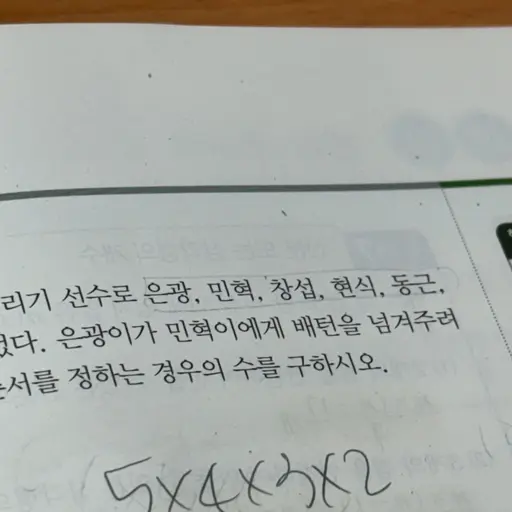 리기 선수로 은광, 민혁, 창섭, 현식, 동근,
었다. 은광이가 민혁이에게 배턴을 넘겨주려
순서를 정하는 경우의 수를 구하시오.
5×4×3×2